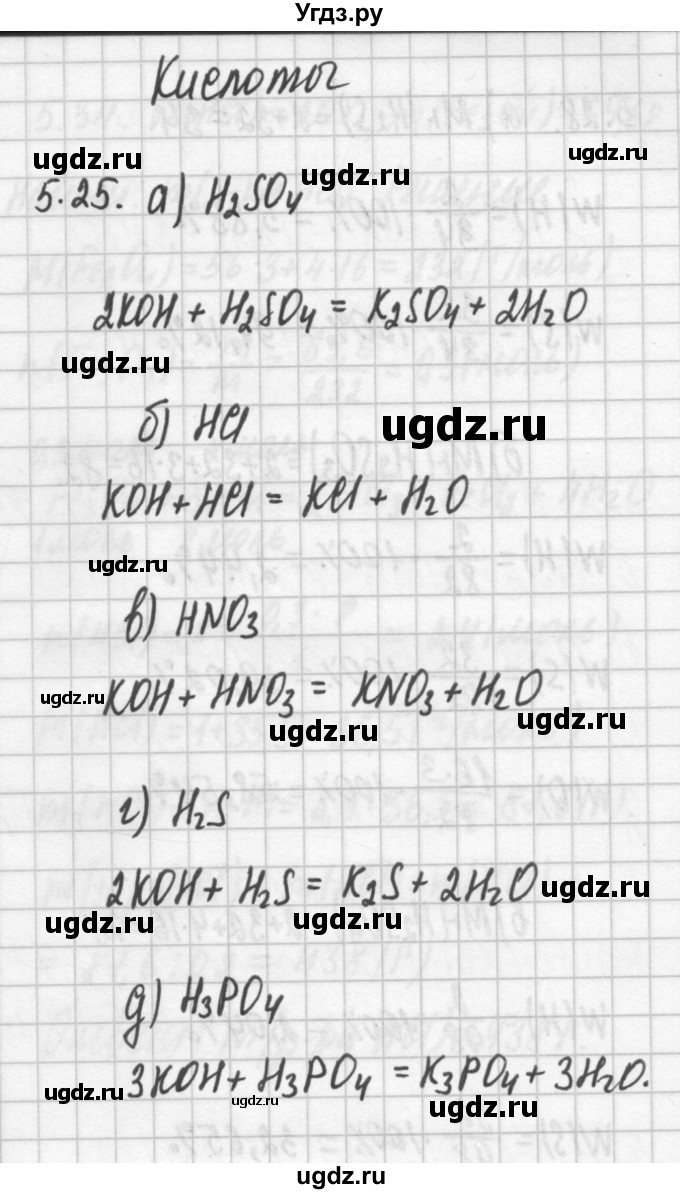 Угдз.ру
Кислоты
ugdz.ru
ugdz.ru
ugdz.ru
5.25. а) H₂SO₄
2KOH + H₂SO₄ = K₂SO₄ + 2H₂O
ugdz.ru
б) HCl
ugdz.ru
KOH + HCl = KCl + H₂O
ugdz.ru
в) HNO₃
ugdz.ru
KOH + HNO₃ = KNO₃ + H₂O
ugdz.ru
ugdz.ru
г) H₂S
2KOH + H₂S = K₂S + 2H₂O
ugdz.ru
ugdz.ru
ugdz.ru
д) H₃PO₄
3KOH + H₃PO₄ = K₃PO₄ + 3H₂O.
ugdz.ru
ugdz.ru
ugdz.ru
ugdz.ru